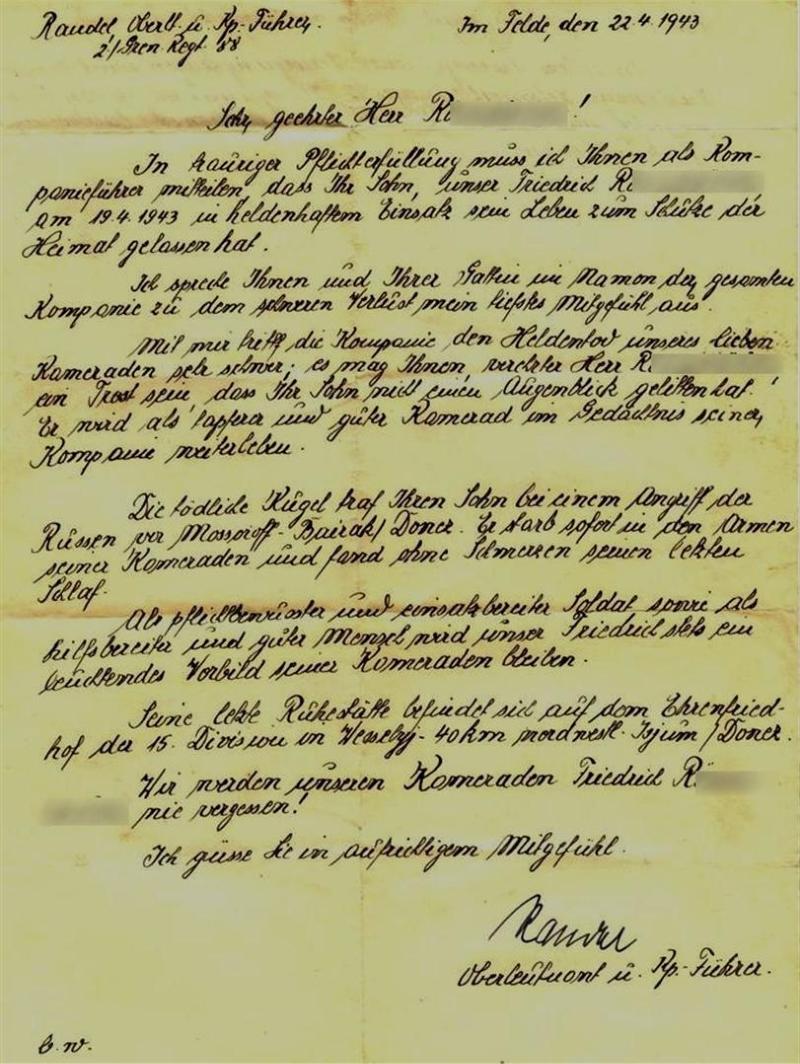 Randel, Oberlt. u. Kp.-Führer,
2/Gren Regt 88
Im Felde, den 22.4.1943
Sehr geehrter Herr R
In trauriger Pflichterfüllung muss ich Ihnen als Kom-
panieführer mitteilen, dass Ihr Sohn, unser Friedrich R
am 19.4.1943 in heldenhaftem Einsatz sein Leben zum Schutze der
Heimat gelassen hat.
Ich spreche Ihnen und Ihrer Gattin im Namen der gesamten
Kompanie zu dem schweren Verlust mein tiefstes Mitgefühl aus.
Mit mir trifft die Kompanie den Heldentod unseres lieben
Kameraden sehr schwer; es mag Ihnen, verehrter Herr R
ein Trost sein, dass Ihr Sohn nicht einen Augenblick gelitten hat!
Er wird als tapferer und guter Kamerad im Gedächtnis seiner
Kompanie weiterleben.
Die tödliche Kugel traf Ihren Sohn bei einem Angriff der
Russen vor Bairak/Donez. Er starb sofort in den Armen
seiner Kameraden und fand ohne Schmerzen seinen letzten
Schlaf.
Als pflichtbewusster und einsatzbereiter Soldat, sowie als
hilfsbereiter und guter Mensch wird unser Friedrich stets ein
leuchtendes Vorbild seiner Kameraden bleiben.
Seine letzte Ruhestätte befindet sich auf dem Ehrenfried-
hof der 15. Division in Wesselyj - 40 km nordwestl. Isjum/Donez.
Wir werden unseren Kameraden Friedrich R
nie vergessen!
Ich grüsse Sie in aufrichtigem Mitgefühl.
Randel
Oberleutnant u. Kp.-Führer.
b.w.